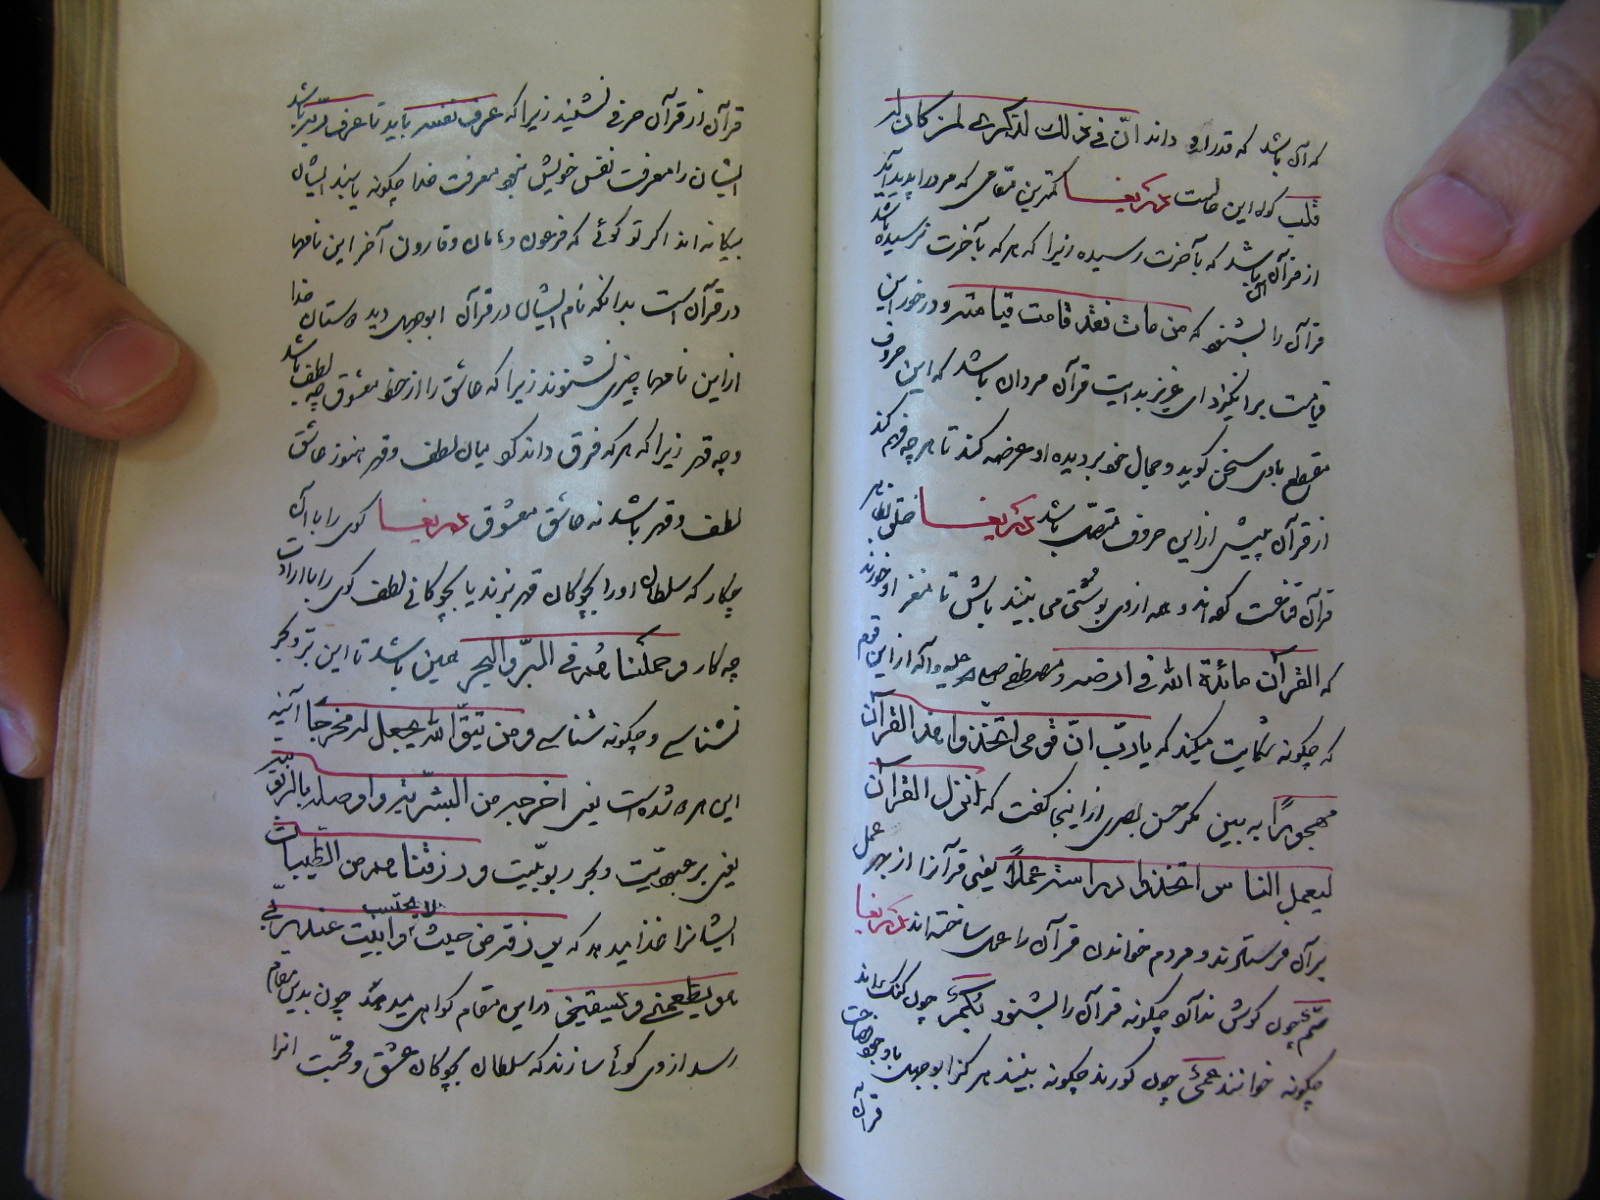 که آن باشد که قدر او داند انّ فی ذلك لذکری لمن کان له
قلب گواه این حالست عزیزا کمترین مقامی که مرد را پدید آید
از قرآن آن باشد که بآخرت رسیده زیرا که هر که بآخرت نرسیده باشد
قرآن را نشنود که من مات فقد قامت قیامته و در خود این
قیامت برانگیزد ای عزیز بدایت قرآن مردان باشد که این حروف
مقطع با وی سخن گوید و جمال خود بر دیده او عرضه کند تا هر چه فهم کند
از قرآن پیش از این حروف متصل باشد عزیزا خلق بظاهر
قرآن قناعت کرده‌اند و همه از وی پوستی می بینند باش تا مغز او خورند
که القرآن مائدة الله فی ارضه و مصطفی صلی الله علیه و آله از این قوم
که چگونه شکایت میکند که یا ربّ انّ قومی اتّخذوا هذا القرآن
مهجورًا به بین مگر حسن بصری از اینجا گفت که انزل القرآن
لیعمل الناس اتخذوا دراسته عملًا یعنی قرآنرا از بهر عمل
بر آن فرستادند و مردم خواندن قرآن را عمل ساخته اند عزیزا
صمّ چون گوش ندارند چگونه قرآن را بشنوند بکم چون گنگ اند
چگونه خوانند عمی چون کورند چگونه بینند هرگز ابوجهل با وجود فصاحت
قرآن
قرآن از قرآن حرفی نشنید زیرا که عرف نفسه باید تا عرف ربّه باشد
ایشان را معرفت نفس خویش نبود معرفت خدا چگونه یابند ایشان
بیگانه اند اگر تو گوئی که فرعون و هامان و قارون آخر این نامها
در قرآن است بدانکه نام ایشان در قرآن ابوجهل دید دوستان خدا
از این نامها چیزی نشنوند زیرا که عاشق را از خط معشوق چه لطف باشد
و چه قهر زیرا که هر که فرق داند کرد میان لطف و قهر هنوز عاشق
لطف و قهر باشد نه عاشق معشوق عزیزا گوی را با آن
چکار که سلطان او را بچوگان قهر زند یا بچوگانی لطف گوی را با ارادت
چه کار و حملناهم فی البرّ و البحر همین باشد تا این بر و بحر
نشناسی و چگونه شناسی و من یتّق الله یجعل له مخرجًا آئینه
این بر شده است یعنی اخرجه من البشریة و اوصله بالربوبیة
یعنی بر عبودیّت و بحر ربوبیّت و رزقناهم من الطّیبات
ایشانرا غذا میدهد که یرزقه من حیث لا یحتسب و ابیت عند ربّی
هو یطعمنی و یسقینی در این مقام گواهی میدهد چون بدین مقام
رسد از وی گوئی سازند که سلطان بچوگان عشق و محبّت انرا